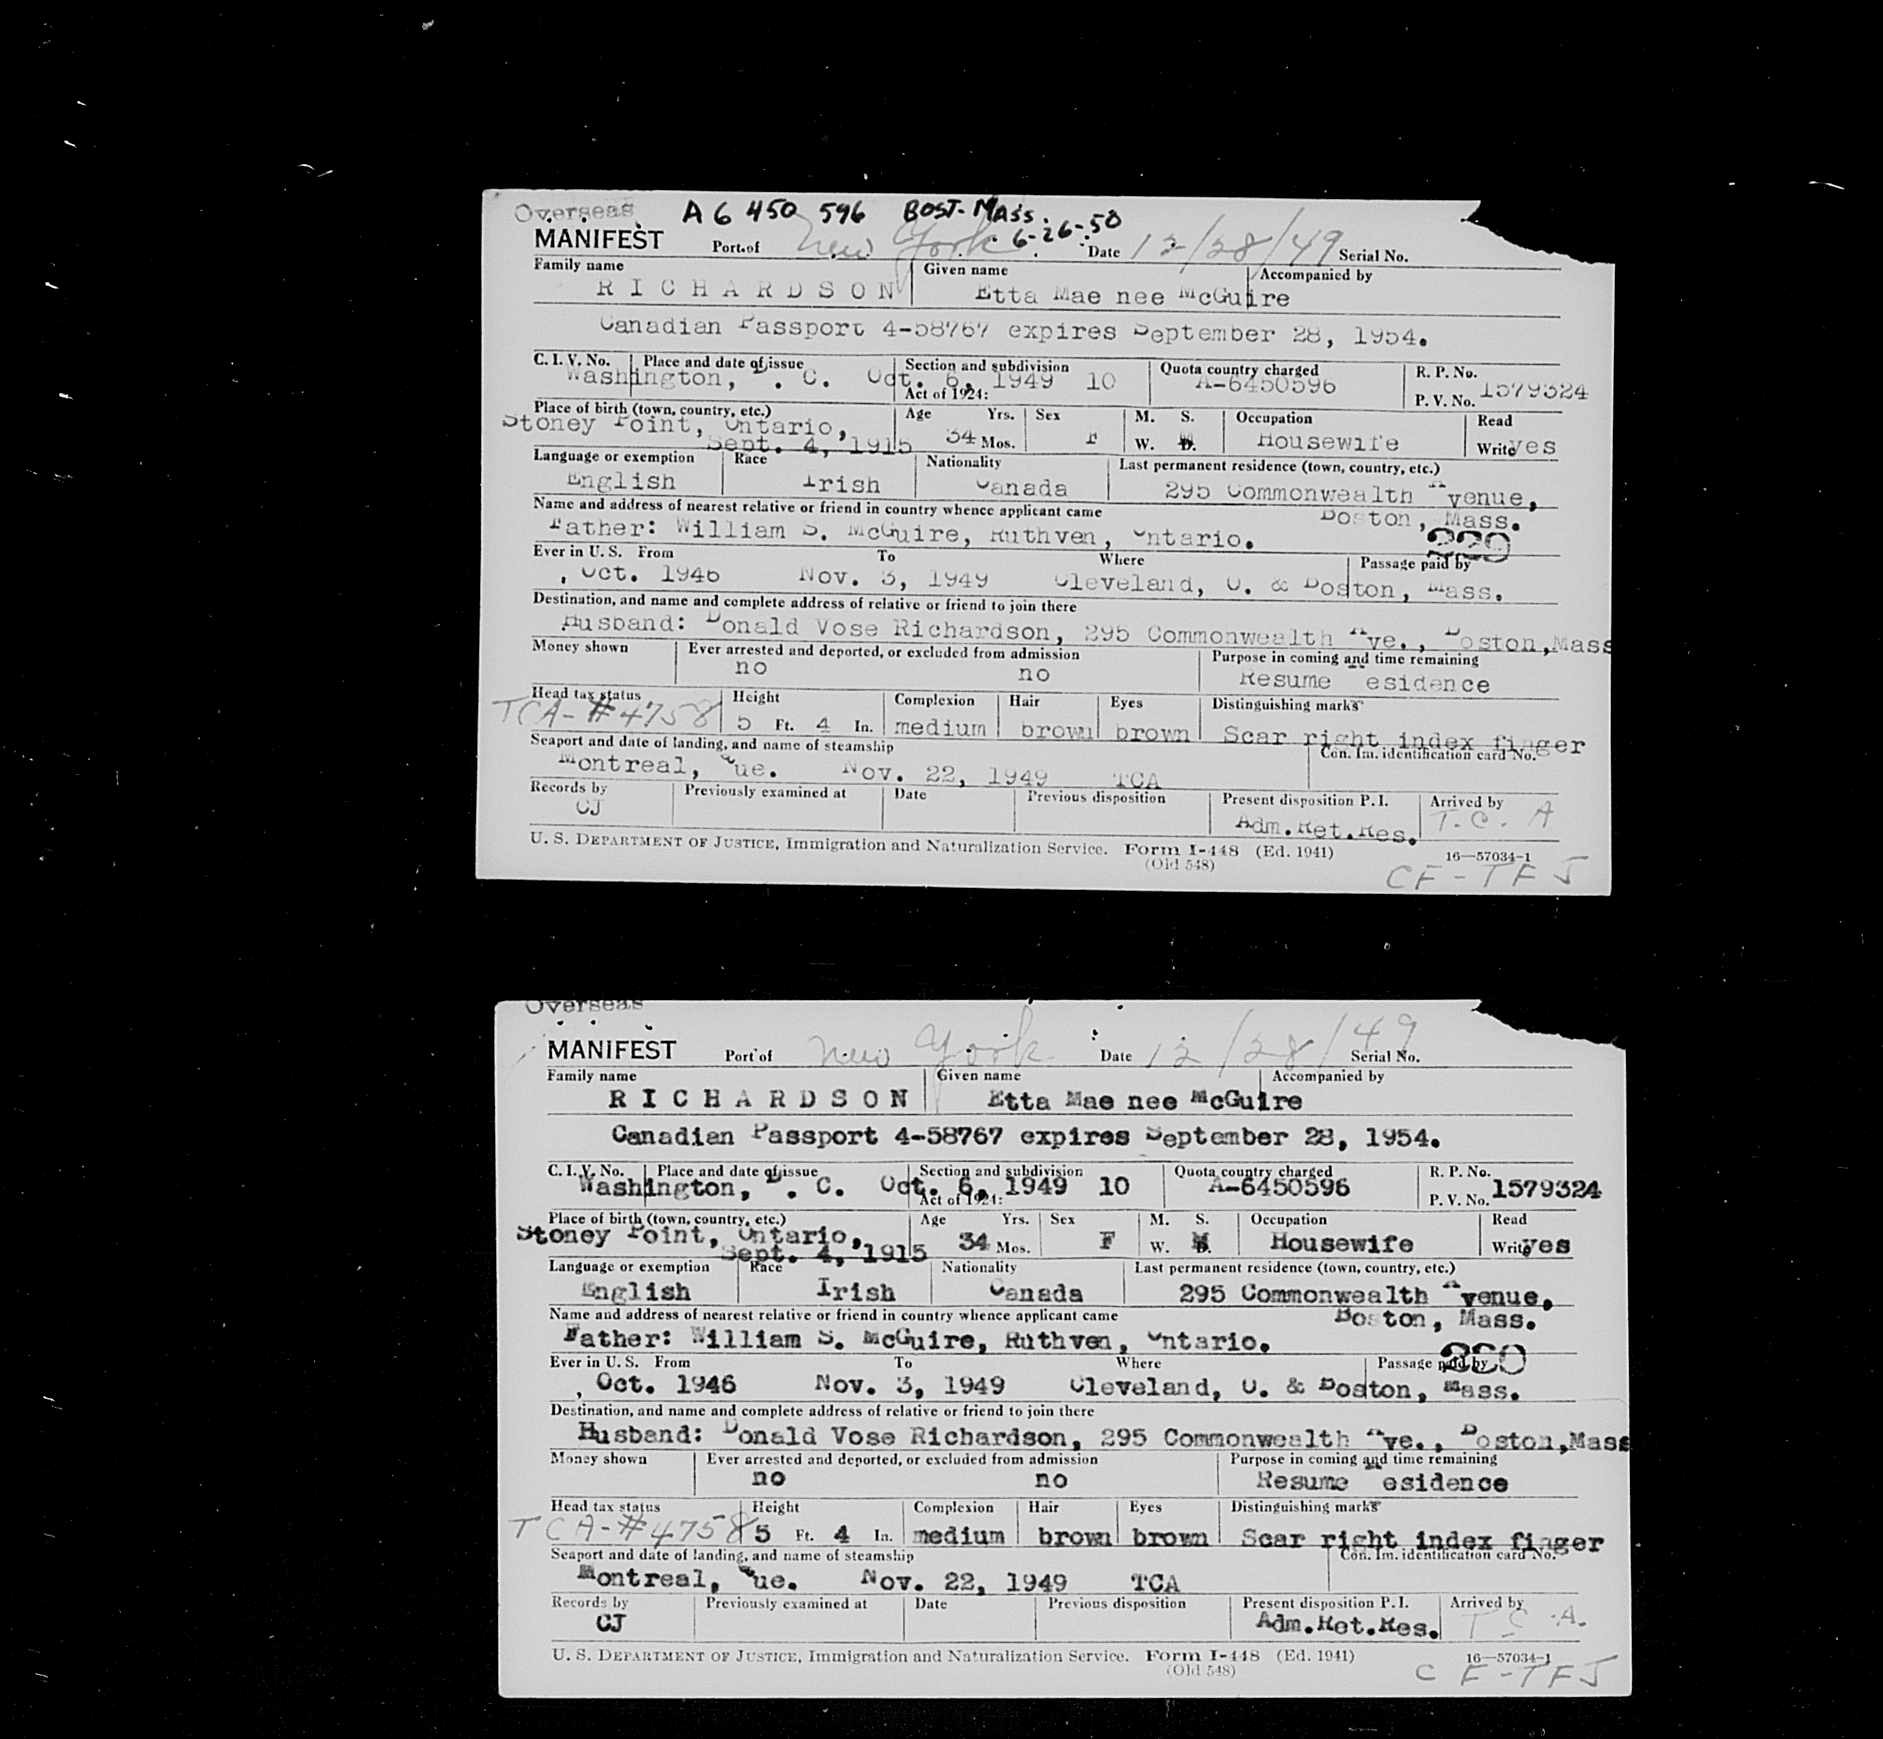 Overseas A6 450 596 BOST. MASS. 6-26-50
MANIFEST Port of New York Date 12/28/49 Serial No.
Family name Given name Accompanied by
RICHARDSON Etta Mae nee McGuire
Canadian Passport 4-58767 expires September 28, 1954.
C. I. V. No. Place and date of issue Section and subdivision Quota country charged R. P. No.
Washington, D. C. Oct. 6, 1949 10 A-6450596 1579324
Act of 1924: P. V. No.
Place of birth (town, country, etc.) Age Yrs. Sex M. S. Occupation Read
Stoney Point, Ontario, 34 Mos. F W. D. Housewife Write yes
Sept. 4, 1915
Language or exemption Race Nationality Last permanent residence (town, country, etc.)
English Irish Canada 295 Commonwealth Avenue,
Name and address of nearest relative or friend in country whence applicant came Boston, Mass.
Father: William S. McGuire, Ruthven, Ontario.
Ever in U. S. From To Where Passage paid by
, Oct. 1946 Nov. 3, 1949 Cleveland, O. & Boston, Mass.
Destination, and name and complete address of relative or friend to join there
Husband: Donald Vose Richardson, 295 Commonwealth Ave., Boston,Mass
Money shown Ever arrested and deported, or excluded from admission Purpose in coming and time remaining
no no Resume Residence
Head tax status Height Complexion Hair Eyes Distinguishing marks
TCA-#4758 5 Ft. 4 In. medium brown brown Scar right index finger
Seaport and date of landing, and name of steamship Con. Im. identification card No.
Montreal, Que. Nov. 22, 1949 TCA
Records by Previously examined at Date Previous disposition Present disposition P. I. Arrived by
CJ Adm.Ret.Res. T.C.A
U. S. DEPARTMENT OF JUSTICE, Immigration and Naturalization Service. Form I-448 (Ed. 1941) 16—57034-1
(Old 548) CF-TFJ
Overseas
MANIFEST Port of New York Date 12/28/49 Serial No.
Family name Given name Accompanied by
RICHARDSON Etta Mae nee McGuire
Canadian Passport 4-58767 expires September 28, 1954.
C. I. V. No. Place and date of issue Section and subdivision Quota country charged R. P. No.
Washington, D. C. Oct. 6, 1949 10 A-6450596 1579324
Act of 1924: P. V. No.
Place of birth (town, country, etc.) Age Yrs. Sex M. S. Occupation Read
Stoney Point, Ontario, 34 Mos. F W. D. Housewife Write yes
Sept. 4, 1915
Language or exemption Race Nationality Last permanent residence (town, country, etc.)
English Irish Canada 295 Commonwealth Avenue,
Name and address of nearest relative or friend in country whence applicant came Boston, Mass.
Father: William S. McGuire, Ruthven, Ontario.
Ever in U. S. From To Where Passage paid by
, Oct. 1946 Nov. 3, 1949 Cleveland, O. & Boston, Mass.
Destination, and name and complete address of relative or friend to join there
Husband: Donald Vose Richardson, 295 Commonwealth Ave., Boston,Mass
Money shown Ever arrested and deported, or excluded from admission Purpose in coming and time remaining
no no Resume Residence
Head tax status Height Complexion Hair Eyes Distinguishing marks
TCA-#4758 5 Ft. 4 In. medium brown brown Scar right index finger
Seaport and date of landing, and name of steamship Con. Im. identification card No.
Montreal, Que. Nov. 22, 1949 TCA
Records by Previously examined at Date Previous disposition Present disposition P. I. Arrived by
CJ Adm.Ret.Res. T.C.A.
U. S. DEPARTMENT OF JUSTICE, Immigration and Naturalization Service. Form I-448 (Ed. 1941) 16—57034-1
(Old 548) CF-TFJ